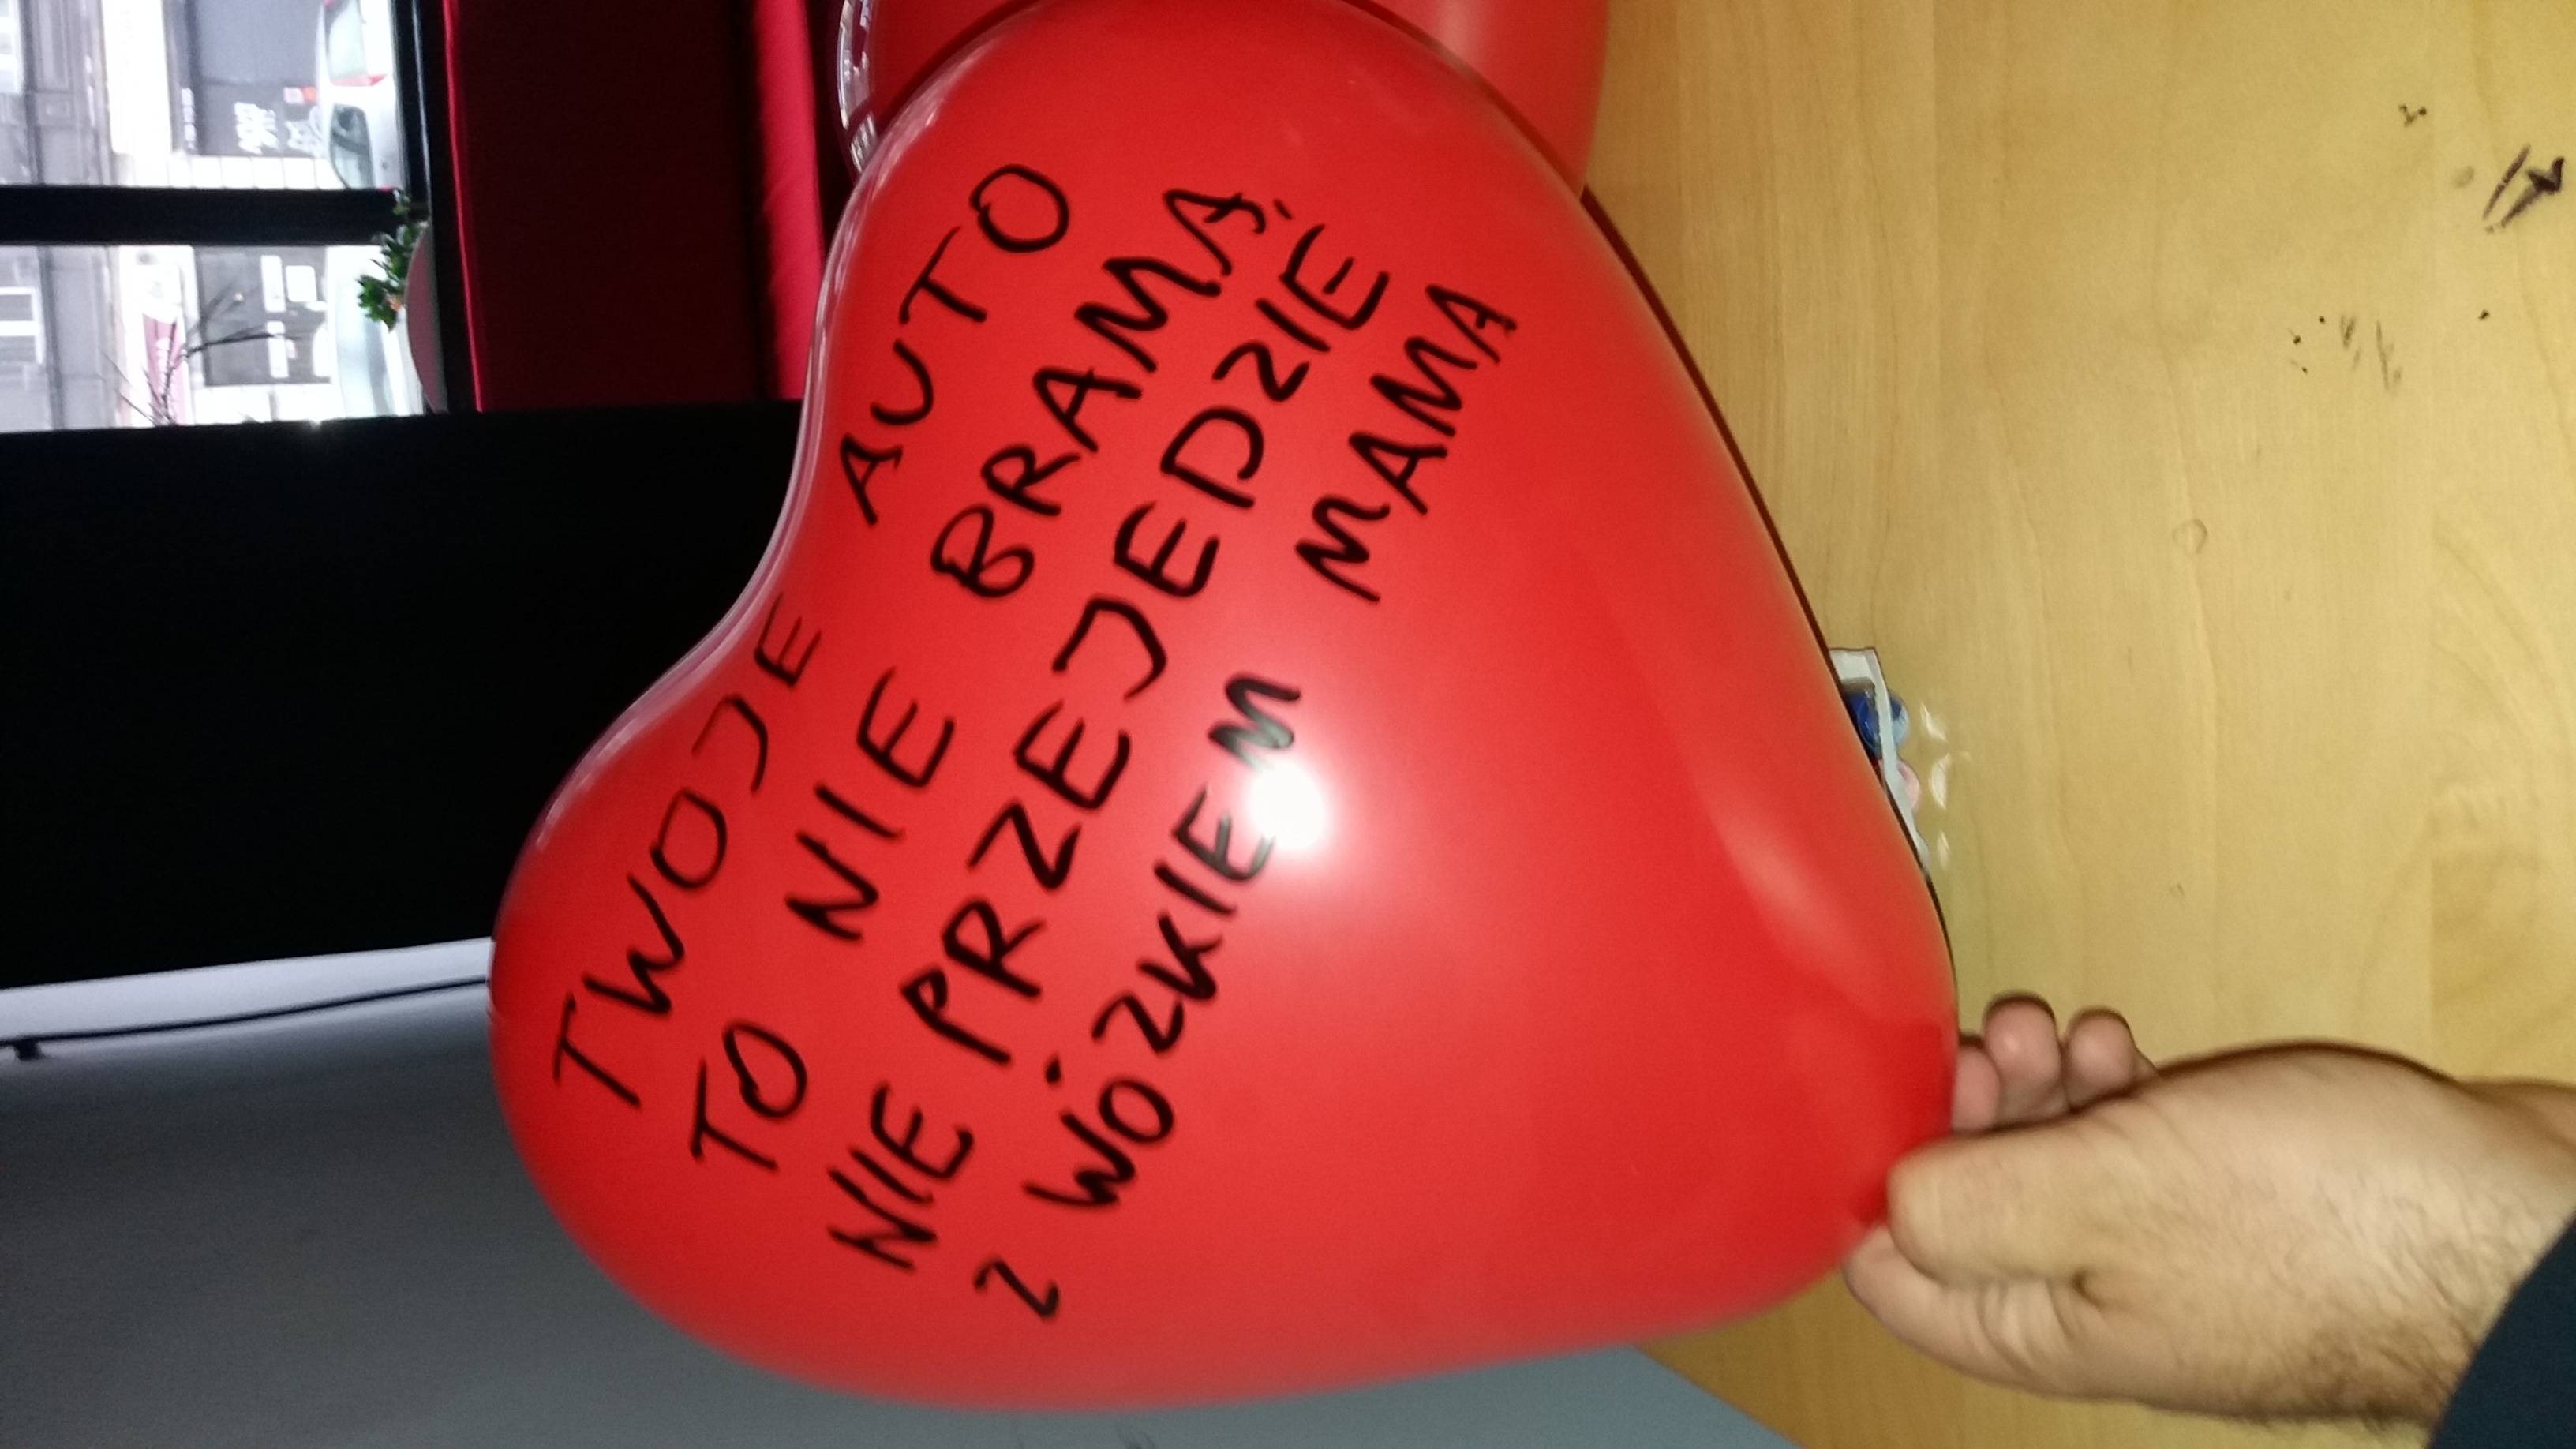 TWOJE AUTO
TO NIE BRAMA,
NIE PRZEJEDZIE
Z WÓZKIEM MAMA